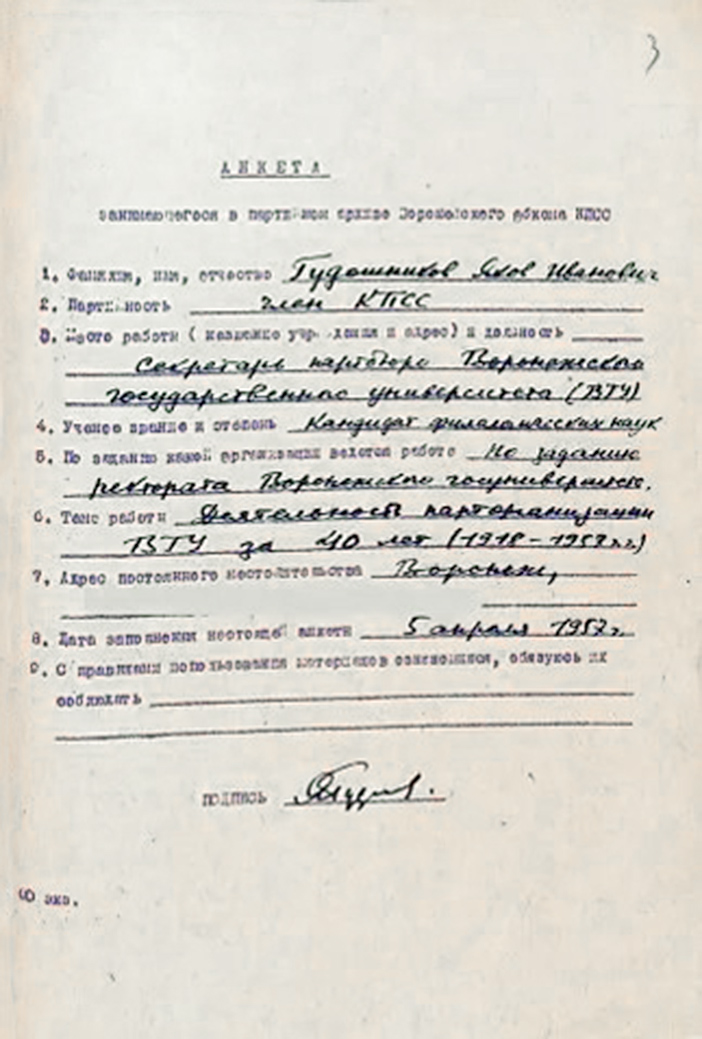 3
АНКЕТА
занимающегося в партийном архиве Воронежского обкома КПСС
1. Фамилия, имя, отчество Гудошников Яков Иванович
2. Партийность член КПСС
3. Место работы ( название учреждения и адрес) и должность
Секретарь партбюро Воронежского
государственного университета (ВГУ)
4. Ученое звание и степень Кандидат филологических наук
5. По заданию какой организации ведется работа По заданию
ректората Воронежского госуниверситета.
6. Тема работы Деятельность парторганизации
ВГУ за 40 лет (1918-1957г.г.)
7. Адрес постоянного местожительства Воронеж,
8. Дата заполнения настоящей анкеты 5 апреля 1957г.
9. С правилами использования материалов ознакомился, обязуюсь их
соблюдать
подпись
экз.